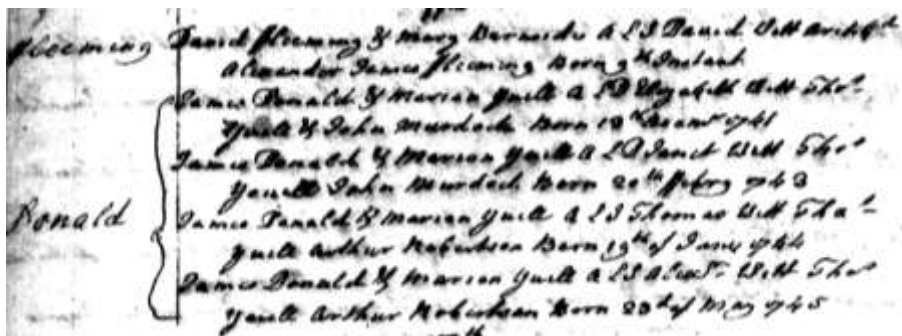 fleeming David fleeming & Mary Burnside A L S David Witt
Alexander James fleeming Born 9th Instant
James Donald & Marion Yuill A L D Elizabeth Witt Thos
Yuill & John Murdoch Born 18th 1741
James Donald & Marion Yuill A L D Janet Witt Thos
Yuill John Murdoch Born 20th febry 1743
Donald James Donald & Marion Yuill A L S Thomas Witt Thos
Yuill Arthur Robertson Born 19th of June 1744
James Donald & Marion Yuill A L S Alexr Witt Thos
Yuill Arthur Robertson Born 23d of May 1745